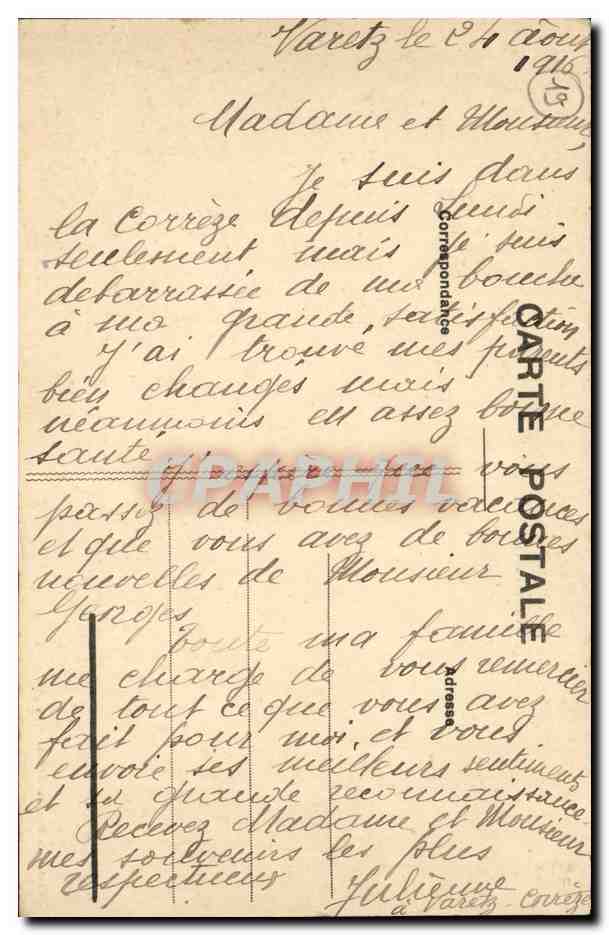 Varetz le 24 août
1916
19
Madame et Monsieur,
Je suis dans
la Corrèze depuis Lundi
seulement mais je suis
debarrassée de ma bouche
à ma grande satisfaction
J'ai trouvé mes parents
bien changés mais
néanmoins en assez bonne
santé, j'espère que vous
passez de bonnes vacances
et que vous avez de bonnes
nouvelles de Monsieur
Georges
Toute ma famille
me charge de vous remercier
de tout ce que vous avez
fait pour moi, et vous
envoie ses meilleurs sentiments
et sa grande reconnaissance
Recevez Madame et Monsieur
mes souvenirs les plus
respectueux Julienne
à Varetz - Corrèze
CARTE POSTALE
Correspondance
Adresse
CPAPHIL